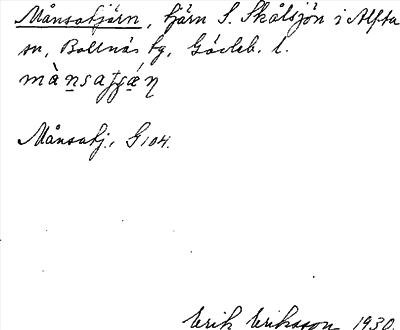 Månsatjärn, tjärn S. Skålsjön i Alfta
sn, Bollnäs tg, Gävleb. l.
mànsaʃʃǽn
Månsatj., G 104.
Erik Eriksson 1930.